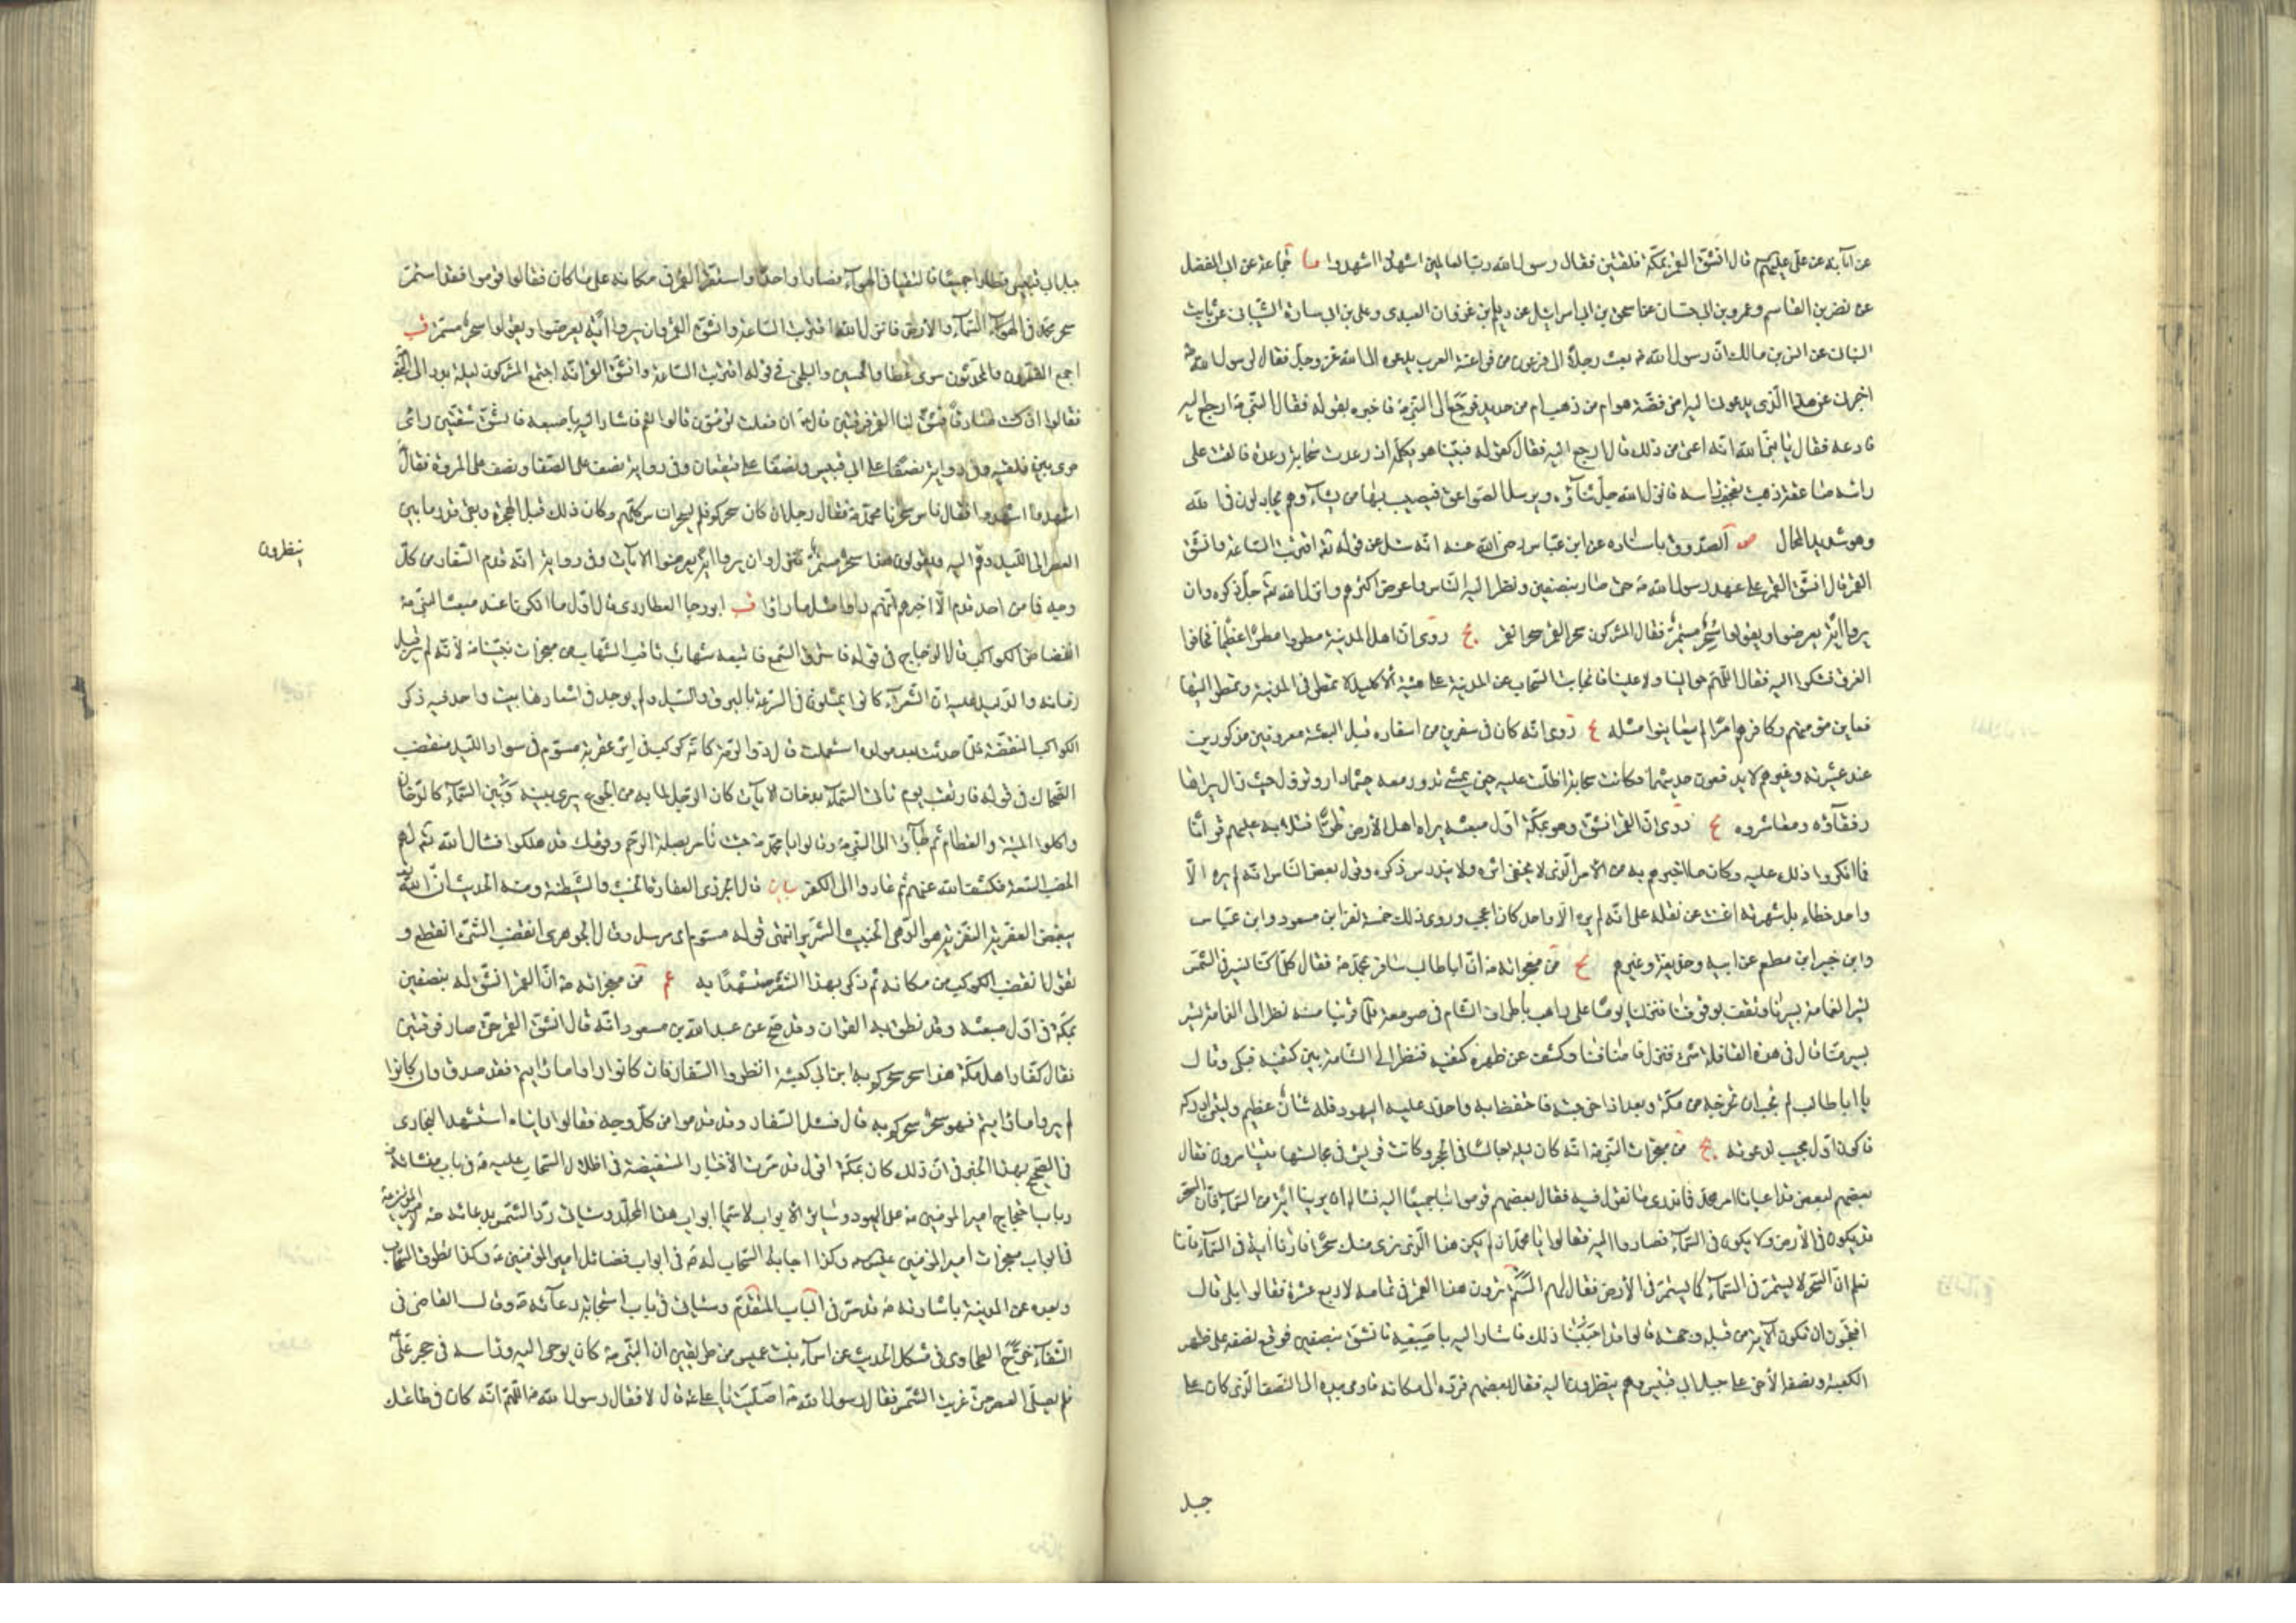 عن آبائه عن علي عليهم قال انشق القمر بمكة فلقتين فقال رسول الله اشهدوا اشهدوا ما جماعة عن ابي المفضل
عن نصر بن القاسم وعمرو بن ابي حسان عن اسحق بن ابي اسرائيل عن ديلم بن غزوان العبدي وعلي بن ابي سارة الشيباني عن ثابت
البناني عن انس بن مالك ان رسول الله ص بعث رجلا الى فرعون من فراعنة العرب يدعوه الى الله عز وجل فقال لرسول الله ص
اخبرني عن هذا الذي يدعوني اليه امن فضة هو ام من ذهب ام من حديد فرجع الى النبي ص فاخبره بقوله فقال النبي ص ارجع اليه
فادعه فقال يا نبي الله انه اعتى من ذلك قال ارجع اليه فقال كقوله فبينا هو يكلمه اذ رعدت سحابة رعدة فالقت على
راسه صاعقة ذهبت بقحف راسه فانزل الله جل ثناؤه ويرسل الصواعق فيصيب بها من يشاء وهم يجادلون في الله
وهو شديد المحال ص الصدوق باسناده عن ابن عباس رضي الله عنه انه سئل عن قوله تع اقتربت الساعة وانشق
القمر قال انشق القمر على عهد رسول الله ص حتى صار بنصفين ونظر اليه الناس واعرض اكثرهم وانزل الله تع جل ذكره وان
يروا اية يعرضوا ويقولوا سحر مستمر فقال المشركون سحر القمر سحر القمر يج روى ان اهل المدينة مطروا مطرا عظيما فخافوا
الغرق فشكوا اليه فقال اللهم حوالينا ولا علينا فانجابت السحاب عن المدينة على هيئة الاكليل لا تمطر في المدينة وتمطر حواليها
فعاين مؤمنهم وكافرهم امرا لم يعاينوا مثله يج روى انه كان في سفرين من اسفاره قبل البعثة معروفين مذكورين
عند عشيرته وغيرهم لا يدفعون حديثهما فكانت سحابة اظلت عليه حين يمشي تدور معه حيثما دار وتزول حيث زال يراها
رفقاؤه ومعاشروه يج روى ان القمر انشق وهو بمكة اول مبعثه يراه اهل الارض طرا فتلا به عليهم قرآنا
فما انكروا ذلك عليه وكان ما اخبرهم به من الامر الذي لا يخفى اثره ولا يندرس ذكره وقول بعض الناس انه لم يره الا
واحد خطاء بل شهرته اغنت عن نقله على انه لم يره الا واحد كان اعجب وروى ذلك خمسة نفر ابن مسعود وابن عباس
وابن جبير ابن مطعم عن ابيه وحذيفة وغيرهم يج من معجزاته ص ان ابا طالب سافر بمحمد ص فقال كلما كنا نسير في الشمس
تسير الغمامة بسيرنا وتقف بوقوفنا فنزلنا يوما على راهب باطراف الشام في صومعة فلما قربنا منه نظر الى الغمامة تسير
بسيرنا قال في هذه القافلة شيء فنزل فاضافنا وكشف عن ظهره كتفيه فنظر الى الشامة بين كتفيه فبكى وقال
يا ابا طالب لم تجب ان تخرجه من مكة وبعد اذ اخرجته فاحتفظ به واحذر عليه اليهود فله شان عظيم وليتني ادركه
فاكون اول مجيب لدعوته يج من معجزات النبي ص انه كان ليلة جالسا في الحجر وكانت قريش في مجالسها يتسامرون فقال
بعضهم لبعض قد اعيانا امر محمد فما ندري ما نقول فيه فقال بعضهم قوموا بنا جميعا اليه نساله ان يرينا اية من السماء فان السحر
قد يكون في الارض ولا يكون في السماء فصاروا اليه فقالوا يا محمد ان لم يكن هذا الذي نرى منك سحرا فارنا اية في السماء فانا
نعلم ان السحر لا يستمر في السماء كما يستمر في الارض فقال لهم الستم ترون هذا القمر في تمامه لاربع عشرة فقالوا بلى قال
افتحبون ان تكون الاية من قبله وجهته قالوا قد احببنا ذلك فاشار اليه باصبعه فانشق بنصفين فوقع نصفه على ظهر
الكعبة ونصفه الاخر على جبل ابي قبيس وهم ينظرون اليه فقال بعضهم فرده الى مكانه فاومى بيده الى النصف الذي كان على
جبل
جبل ابي قبيس فطارا جميعا فالتقيا في الهواء فصارا واحدا واستقر القمر في مكانه على ما كان فقالوا قوموا فقد استمر
سحر محمد في السماء والارض فانزل الله اقتربت الساعة وانشق القمر وان يروا اية يعرضوا ويقولوا سحر مستمر قب
اجمع المفسرون والمحدثون سوى عطا والحسين والبلخي في قوله اقتربت الساعة وانشق القمر انه اجتمع المشركون ليلة بدر الى النبي
فقالوا ان كنت صادقا فشق لنا القمر فرقتين قال ص ان فعلت تؤمنون قالوا نعم فاشار اليه باصبعه فانشق شقتين راى
حرى بين فلقيه وفي رواية نصفا على ابي قبيس ونصفا على قيقعان وفي رواية نصف على الصفا ونصف على المروة فقال
اشهدوا اشهدوا فقال ناس سحرنا محمد ص فقال رجل ان كان سحركم فلم يسحر الناس كلهم وكان ذلك قبل الهجرة وبقي قدر ما بين
العصر الى الليل وهم اليه ويقولون هذا سحر مستمر فنزل وان يروا اية يعرضوا الايات وفي رواية انه قدم السفار من كل
ينظرون
وجه فما من احد قدم الا اخبرهم انهم راوا مثل ما راوا قب ابو رجا العطاردي قال اول ما انكرنا عند مبعث النبي ص
انقضاض الكواكب قال الزجاج في قوله فاسترق السمع فاتبعه شهاب ثاقب الشهاب من معجزات نبينا ص لانه لم ير قبل
زمانه والدليل عليه ان الشعراء كانوا يمثلون في السرعة بالبرق والسيل ولم يوجد في اشعارها بيت واحد فيه ذكر
الكواكب المنقضة فلما حدثت بعد مولده استعملت قال ذو الرمة كانه كوكب في اثر عفرية مسوم في سواد الليل منقضب
الضحاك في قوله فارتقب يوم تاتي السماء بدخان الايات كان الرجل لما به من الجوع يرى بينه وبين السماء كالدخان
واكلوا الميتة والعظام ثم جاؤا الى النبي ص وقالوا يا محمد ص جئت تامر بصلة الرحم وقومك قد هلكوا فسال الله تع لهم
الخصب والسعة فكشف الله عنهم ثم عادوا الى الكفر بيان قال الجزري العفارة الخبث والشيطنة ومنه الحديث ان الله تع
يبغض العفرية النفرية هو الداهي الخبيث الشرير انتهى قوله مسوم اي مرسل وقال الجوهري انقضب الشيء انقطع و
تقول انقضب الكوكب من مكانه ثم ذكر بهذا الشعر مستشهدا به عم من معجزاته ص ان القمر انشق له بنصفين
بمكة في اول مبعثه وقد نطق به القران وقد صح عن عبد الله بن مسعود انه قال انشق القمر حتى صار فرقتين
فقال كفار اهل مكة هذا سحر سحركم به ابن ابي كبشة انظروا السفار فان كانوا راوا ما رايتم فقد صدق وان كانوا
لم يروا ما رايتم فهو سحر سحركم به قال فسئل السفار وقد قدموا من كل وجه فقالوا رايناه استشهد البخاري
في الصحيح بهذا الخبر في ان ذلك كان بمكة اقول قد مرت الاخبار المستفيضة في اظلال السحاب عليه ص في باب منشائه
وباب احتجاج امير المؤمنين ص على اليهود وسائر الابواب لا سيما ابواب هذا المجلد وسياتي رد الشمس بدعائه ص لامير المؤمنين
في ابواب معجزات امير المؤمنين عليه السلام وكذا اجابة السحاب له ص في ابواب فضائل امير المؤمنين ع وكذا تطوق السحاب
وبعده عن المدينة باشارته ص قد مر في الباب المتقدم وسياتي في باب استجابة دعائه ص وقال القاضي في
الشفاء خرج الطحاوي في مشكل الحديث عن اسماء بنت عميس من طريقين ان النبي ص كان يوحى اليه وراسه في حجر علي
فلم يصلي العصر حتى غربت الشمس فقال رسول الله ص اصليت يا علي قال لا فقال رسول الله ص اللهم انه كان في طاعتك